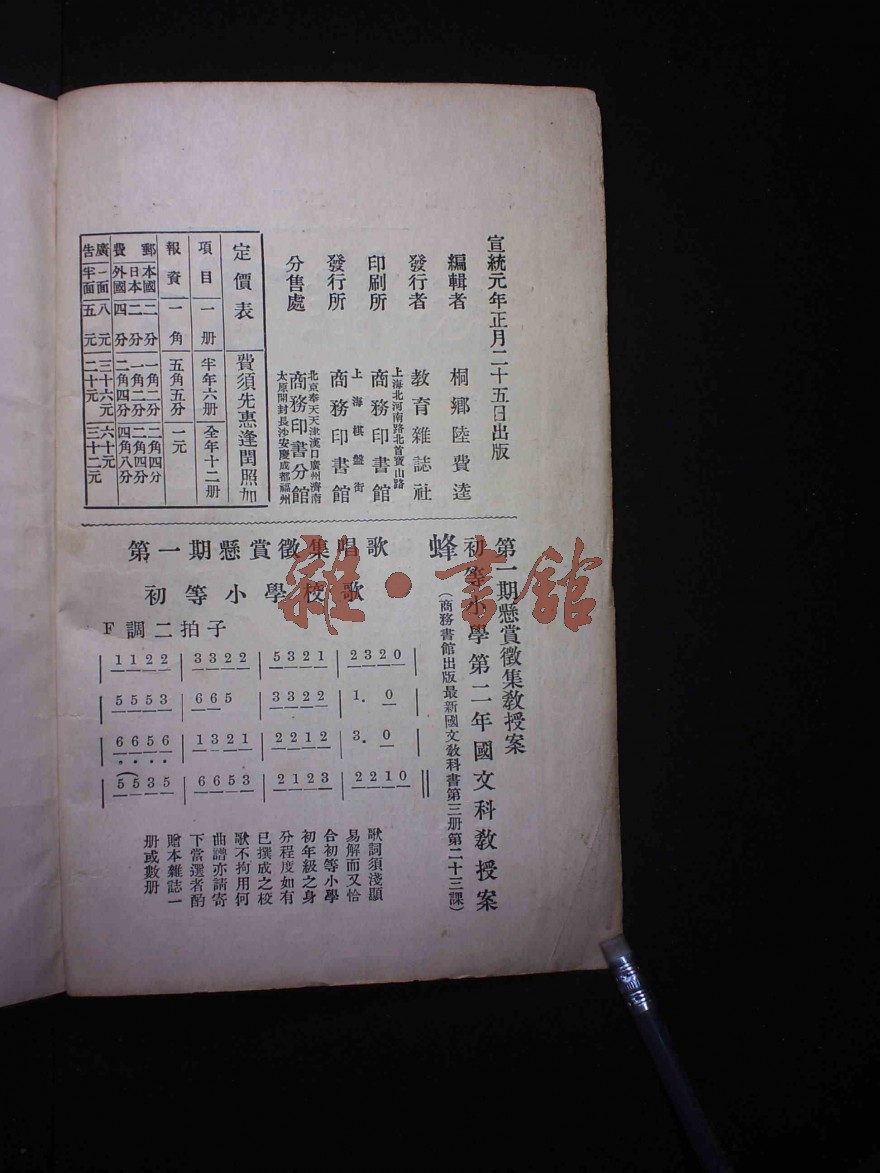 宣統元年正月二十五日出版
編輯者 桐鄉陸費逵
發行者 教育雜誌社
上海北河南路北首寶山路
印刷所 商務印書館
上海棋盤街
發行所 商務印書館
北京奉天天津漢口廣州濟南
分售處 商務印書分館
太原開封長沙安慶成都福州
定價表 費須先惠逢閏照加
項目 一册 半年六册 全年十二册
報資 一角 五角五分 一元
郵費 本國 二分 一角二分 二角四分
日本 二分 一角二分 二角四分
外國 四分 二角四分 四角八分
廣告 一面 八元 三十六元 六十元
半面 五元 二十元 三十二元
第一期懸賞徵集教授案
初等小學第二年國文科教授案
(商務書館出版最新國文教科書第三册第二十三課)
蜂
第一期懸賞徵集唱歌
初等小學校歌
F調二拍子
| 1 1 2 2 | 3 3 2 2 | 5 3 2 1 | 2 3 2 0
| 5 5 5 3 | 6 6 5 | 3 3 2 2 | 1. 0
| 6 6 5 6 | 1 3 2 1 | 2 2 1 2 | 3. 0
| 5 5 3 5 | 6 6 5 3 | 2 1 2 3 | 2 2 1 0 ||
歌詞須淺顯
易解而又恰
合初等小學
初年級之身
分程度如有
已撰成之校
歌不拘用何
曲譜亦請寄
下當選者酌
贈本雜誌一
册或數册
雜·書館